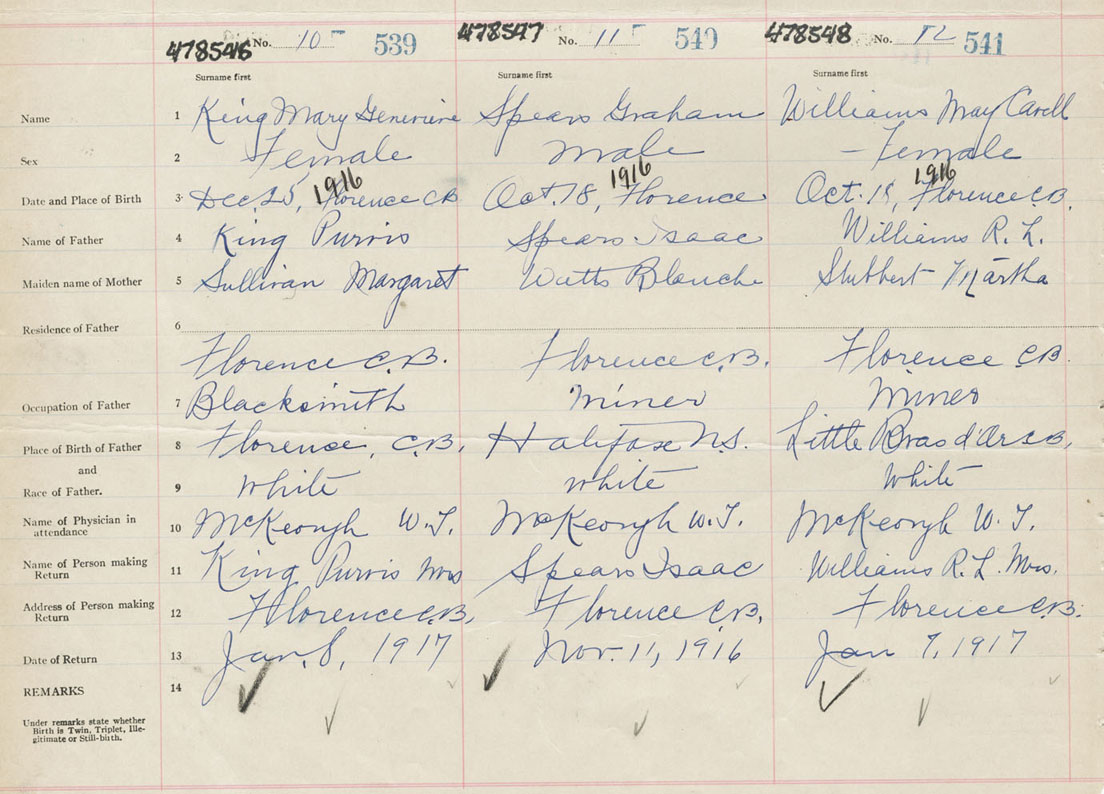 478546 No. 10 539 478547 No. 11 540 478548 No. 12 541
Surname first Surname first Surname first
Name 1 King Mary Genevieve Spears Graham Williams May Cavell
Sex 2 Female Male - Female
1916 1916 1916
Date and Place of Birth 3 Dec. 25, Florence CB Oct. 18, Florence Oct. 18, Florence C.B.
Name of Father 4 King Purvis Spears Isaac Williams R. L.
Maiden name of Mother 5 Sullivan Margaret Watts Blanche Stubbert Martha
Residence of Father 6
Florence C.B. Florence C.B. Florence CB.
Occupation of Father 7 Blacksmith Miner Miner
Place of Birth of Father 8 Florence, C.B. Halifax N.S. Little Bras d'Or C.B.
and
Race of Father. 9 White White White
Name of Physician in
attendance 10 McKeough W. J. McKeough W. J. McKeough W. J.
Name of Person making
Return 11 King Purvis Mrs Spears Isaac Williams R. L. Mrs.
Address of Person making
Return 12 Florence C.B. Florence C.B. Florence C.B.
Date of Return 13 Jan. 8, 1917 Nov. 11, 1916 Jan 7, 1917
REMARKS 14
Under remarks state whether
Birth is Twin, Triplet, Ille-
gitimate or Still-birth.